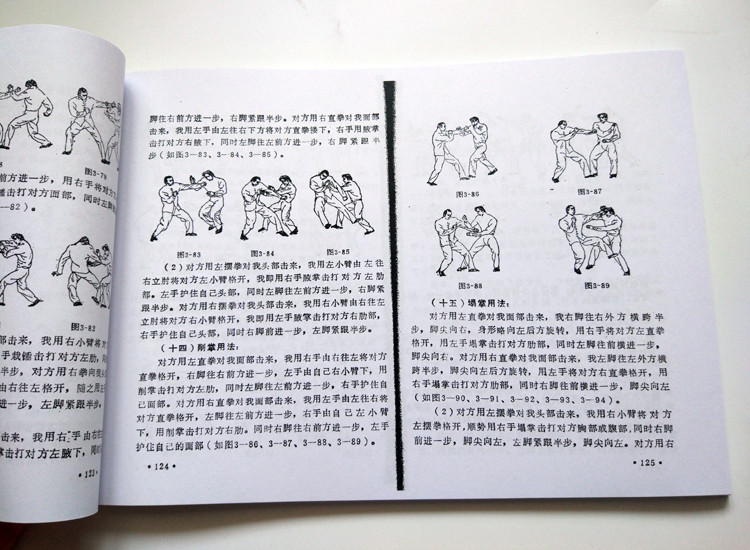 图3-79
前方进一步，用右手将对方
锤击打对方面部，同时左脚
—82）。
图3-82
击来，我用右小臂由
手栽锤击打对方左肋，
步。对方用右拳向我
由右往左格开，随之
，左脚紧跟半步。
击来，我用右手由右往
掌击打对方左腋下，同时
·123·
脚往右前方进一步，右脚紧跟半步。对方用右直拳对我面部
击来，我用左手由左往右下方将对方直拳搂下，右手用腋掌
击打对方右腋下，同时左脚往左前方进一步，右脚紧跟半
步（如图3—83、3—84、3—85）。
图3-83
图3-84
图3-85
（2）对方用左摆拳对我头部击来，我用左小臂由左往
右立肘将对方左小臂格开，我即用右手腋掌击打对方左肋
部。左手护住自己头部，同时左脚往左前方进一步，右脚紧
跟半步。对方用右摆拳对我头部击来，我用右小臂由右往左
立肘将对方右小臂格开，我即用左手腋掌击打对方右肋部，
右手护住自己头部，同时右脚前进一步，左脚紧跟半步。
（十四）削掌用法：
对方用左直拳对我面部击来，我用右手由右往左将对方
直拳格开，右脚往右前方进一步，左手由自己右小臂下，用
削掌击打对方左肋，同时左脚往左前方进一步，右手护住自
己面部。对方用右直拳对我面部击来，我用左手由左往右将
对方直拳格开，左脚往左前方进一步，右手由自己左小臂
下，用削掌击打对方右肋。同时右脚往右前方进一步，左手
护住自己的面部（如图3—86、3—87、3—88、3—89）。
·124·
图3-86
图3-87
图3-88
图3-89
（十五）塌掌用法：
对方用左直拳对我面部击来，我右脚往右外方横跨半
步，脚尖向右，身形略向左后方旋转，用右手将对方左直拳
格开，用左手塌掌击打对方肋部，同时左脚往前横进一步，
脚尖向右。对方用右直拳对我面部击来，我左脚往左外方横
跨半步，脚尖向左后方旋转，用左手将对方右直拳格开，用
右手塌掌击打对方肋部，同时右脚往前横进一步，脚尖向左
（如图3—90、3—91、3—92、3—93、3—94）。
（2）对方用左摆拳对我头部击来，我用右小臂将对方
左摆拳格开，顺势用右手塌掌击打对方胸部或腹部，同时右脚
前进一步，脚尖向左，左脚紧跟半步，脚尖向左。对方用右
·125·